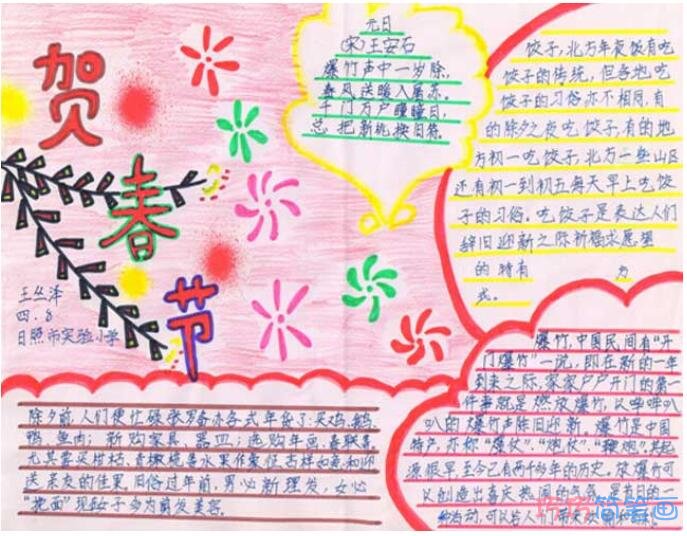 贺春节
王丛泽
四.8
日照市实验小学
元日
(宋)王安石
爆竹声中一岁除,
春风送暖入屠苏。
千门万户曈曈日,
总把新桃换旧符。
饺子,北方年夜饭有吃
饺子的传统,但各地吃
饺子的习俗亦不相同,有
的除夕之夜吃饺子,有的地
方初一吃饺子,北方一些山区
还有初一到初五每天早上吃饺
子的习俗。吃饺子是表达人们
辞旧迎新之际祈福求愿望
的特有 方
式。
爆竹,中国民间有"开
门爆竹"一说,即在新的一年
到来之际,家家户户开门的第一
件事就是燃放爆竹,以哔哔叭
叭的爆竹声除旧迎新。爆竹是中国
特产,亦称"爆仗"、"炮仗"、"鞭炮"。其起
源很早,至今已有两千多年的历史。放爆竹可
以创造出喜庆热闹的气氛,是节日的一
种活动,可以给人们带来欢愉和
除夕前,人们便忙碌张罗备办各式年货了:买鸡、鹅、
鸭、鱼肉;新购家具、器皿;选购年画、春联等,
尤其喜买柑桔、青橄榄等水果作象征吉祥如意和迎
送亲友的佳果。旧俗过年前,男必新理发,女必
现女子多为剪发美容。